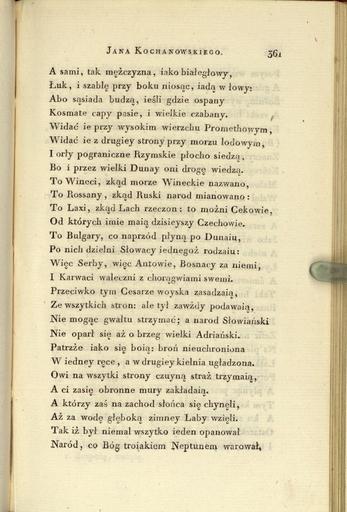 Jana Kochanowskiego. 361
A sami, tak mężczyzna, iako białegłowy,
Łuk, i szablę przy boku niosąc, iadą w łowy:
Abo sąsiada budzą, ieśli gdzie ospany
Kosmate capy pasie, i wielkie czabany.
Widać ie przy wysokim wierzchu Promethowym,
Widać ie z drugiey strony przy morzu lodowym,
I orły pograniczne Rzymskie płocho siedzą,
Bo i przez wielki Dunay oni drogę wiedzą.
To Wineci, zkąd morze Wineckie nazwano,
To Rossany, zkąd Ruski narod mianowano:
To Laxi, zkąd Lach rzeczon: to możni Cekowie,
Od których imie maią dzisieyszy Czechowie.
To Bulgary, co naprzód płyną po Dunaiu,
Po nich dzielni Słowacy iednegoż rodzaiu:
Więc Serby, więc Antowie, Bosnacy za niemi,
I Karwaci waleczni z chorągwiami swemi.
Przeciwko tym Cesarze woyska zasadzaią,
Ze wszytkich stron: ale tył zawżdy podawaią,
Nie mogąc gwałtu strzymać; a narod Słowiański
Nie oparł się aż o brzeg wielki Adriański.
Patrzże iako się boią: broń nieuchroniona
W iedney ręce, a w drugiey kielnia ugładzona.
Owi na wszytki strony czuyną straż trzymaią,
A ci zasię obronne mury zakładaią.
A którzy zaś na zachod słońca się chynęli,
Aż za wodę głęboką zimney Laby wzięli.
Tak iż był niemal wszytko ieden opanował
Naród, co Bóg troiakiem Neptunem warował,